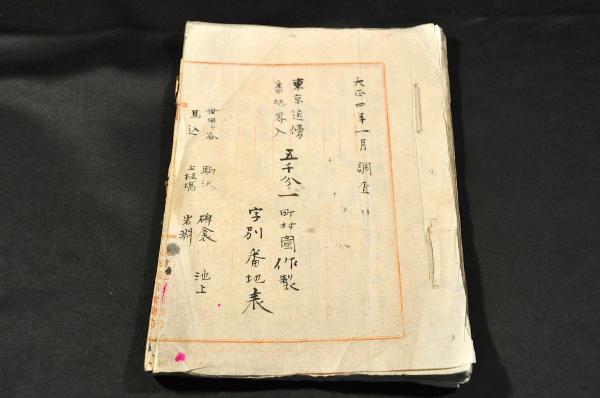 大正四年一月調査
東京近傍
番地界入
五千分一町村圖作製
字別番地表
世田ヶ谷 駒沢 碑衾 池上
馬込 上板橋 岩淵